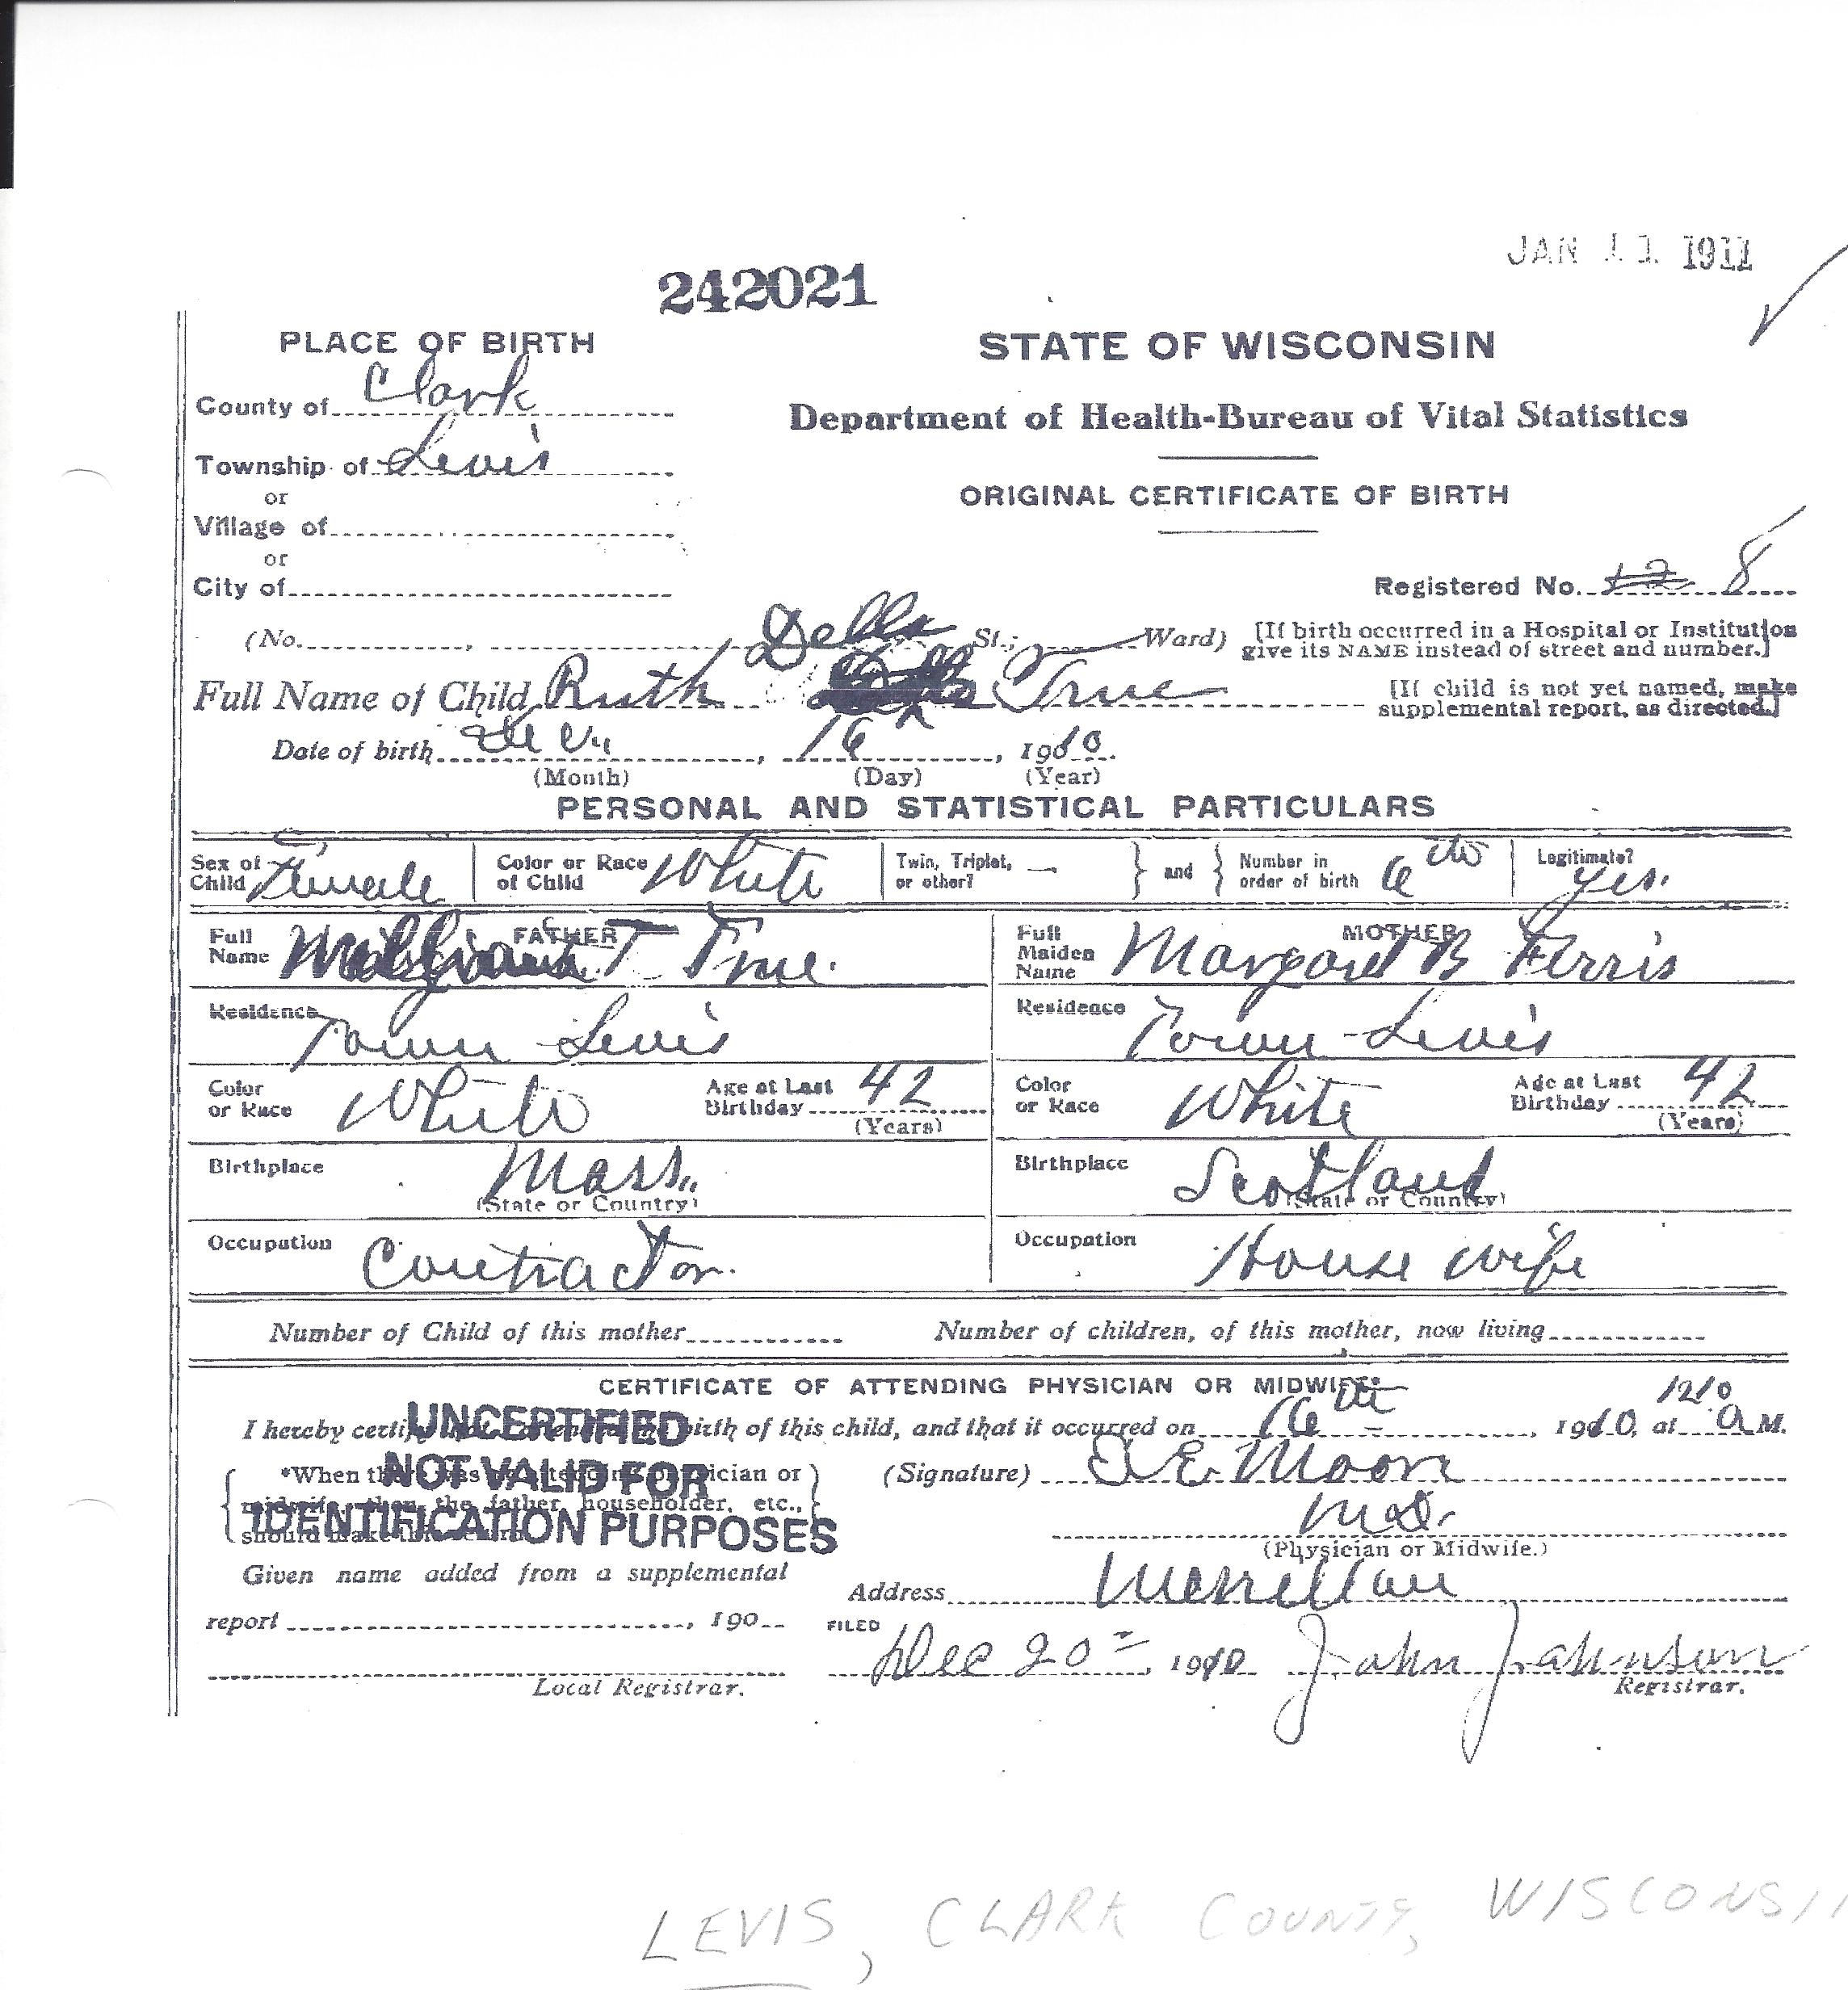 JAN 11 1911
242021
PLACE OF BIRTH
STATE OF WISCONSIN
County of Clark
Department of Health-Bureau of Vital Statistics
Township of Levis
or
ORIGINAL CERTIFICATE OF BIRTH
Village of
or
City of
Registered No. 12 8
(No. , Della St.; Ward) [If birth occurred in a Hospital or Institution
give its NAME instead of street and number.]
Full Name of Child Ruth True [If child is not yet named, make
supplemental report, as directed.]
Date of birth , 16 , 1910
(Month) (Day) (Year)
PERSONAL AND STATISTICAL PARTICULARS
Sex of Child Female Color or Race of Child White Twin, Triplet, or other? — and Number in order of birth 6th Legitimate? yes.
FATHER MOTHER
Full Name William T True. Full Maiden Name Margaret B Ferris
Residence Town Levis Residence Town Levis
Color or Race White Age at Last Birthday 42 (Years) Color or Race White Age at Last Birthday 42 (Years)
Birthplace Mass. Birthplace Scotland
(State or Country) (State or Country)
Occupation Contractor. Occupation House wife
Number of Child of this mother Number of children, of this mother, now living
CERTIFICATE OF ATTENDING PHYSICIAN OR MIDWIFE*
I hereby certify that I attended the birth of this child, and that it occurred on 16th , 1910, at 1210 a M.
UNCERTIFIED
NOT VALID FOR
IDENTIFICATION PURPOSES
*When there was no attending physician or
midwife, then the father, householder, etc.,
should make this return.
(Signature) E. Moon
M.D.
(Physician or Midwife.)
Given name added from a supplemental
Address Merrillan
report , 190
FILED
Dec 20th, 1910 John Johnson
Local Registrar. Registrar.
LEVIS, CLARK COUNTY, WISCONSIN